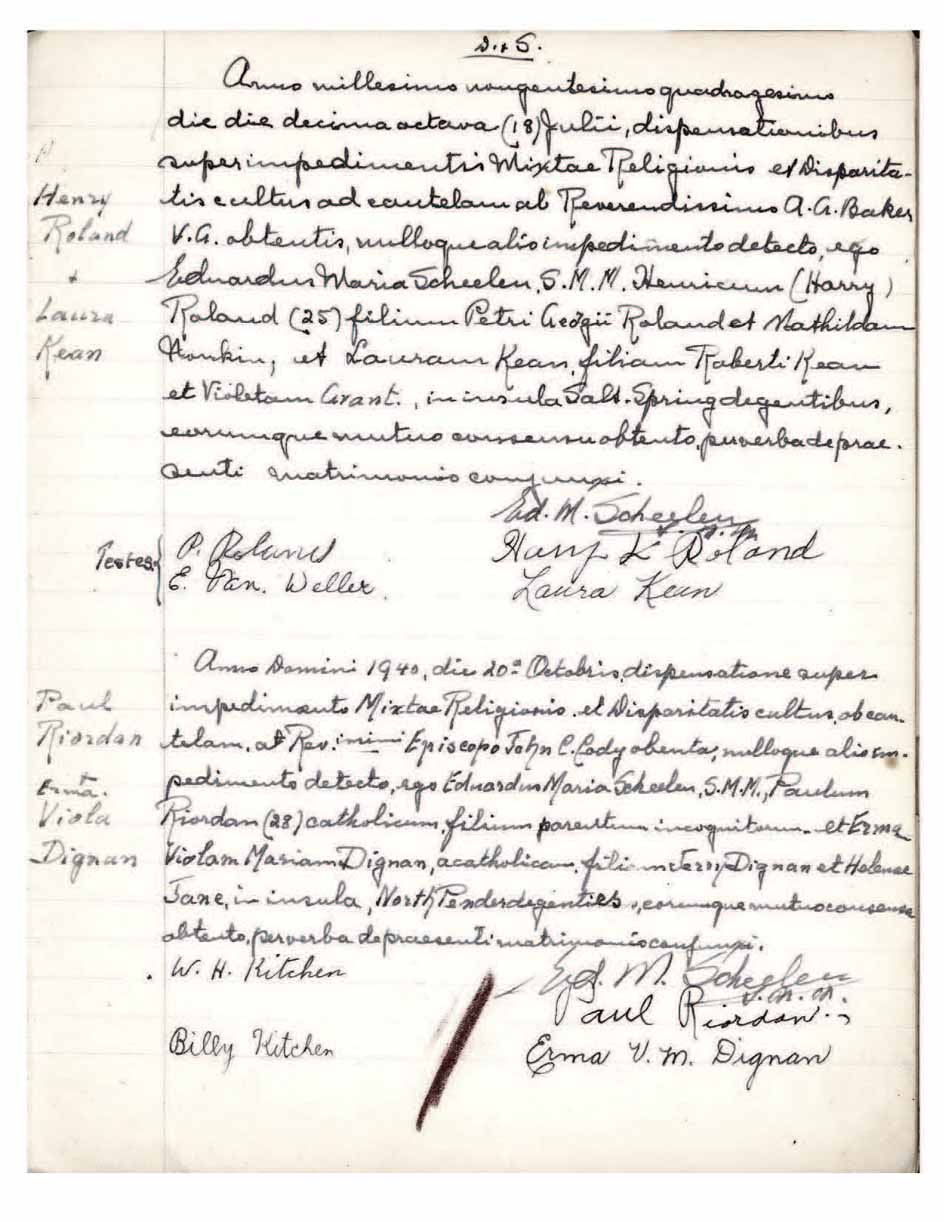 D.+S.
Anno millesimo nongentesimo quadragesimo
die die decima octava (18) Julii, dispensationibus
super impedimentis Mixtae Religionis et Disparita-
tis cultus ad cautelam ab Reverendissimo A.G. Baker
V.G. obtentis, nulloque alio impedimento detecto, ego
Eduardus Maria Scheelen, S.M.M. Henricum (Harry)
Roland (25) filium Petri Georgii Roland et Mathildam
et Lauram Kean, filiam Roberti Kean
et Violetam Grant., in insula Salt. Spring degentibus,
eorumque mutuo consensu obtento, per verba de prae-
senti matrimonio conjunxi.
Henry
Roland
+
Laura
Kean
Ed. M. Scheelen
S.M.M.
Testes: P. Roland
Harry K Roland
E. Van. Weller.
Laura Kean
Anno Domini 1940, die 20ª Octobris, dispensatione super
impedimento Mixtae Religionis et Disparitatis cultus, ob cau-
telam, at Rev.imimi Episcopo John C. Cody obenta, nulloque alio im-
pedimento detecto, ego Eduardus Maria Scheelen, S.M.M., Paulum
Riordan (28) catholicum, filium parentum incognitorum. et Erma
Violam Mariam Dignan, acatholicam, filiam Terry Dignan et Helenae
Jane, in insula, North Pender degenties, eorumque mutuo consensu
obtento, per verba de praesenti matrimonio conjunxi.
Paul
Riordan
+
Erma.
Viola
Dignan
W. H. Kitchen
Ed. M. Scheelen
S.M.M.
Paul Riordan.
Billy Kitchen
Erma V. M. Dignan